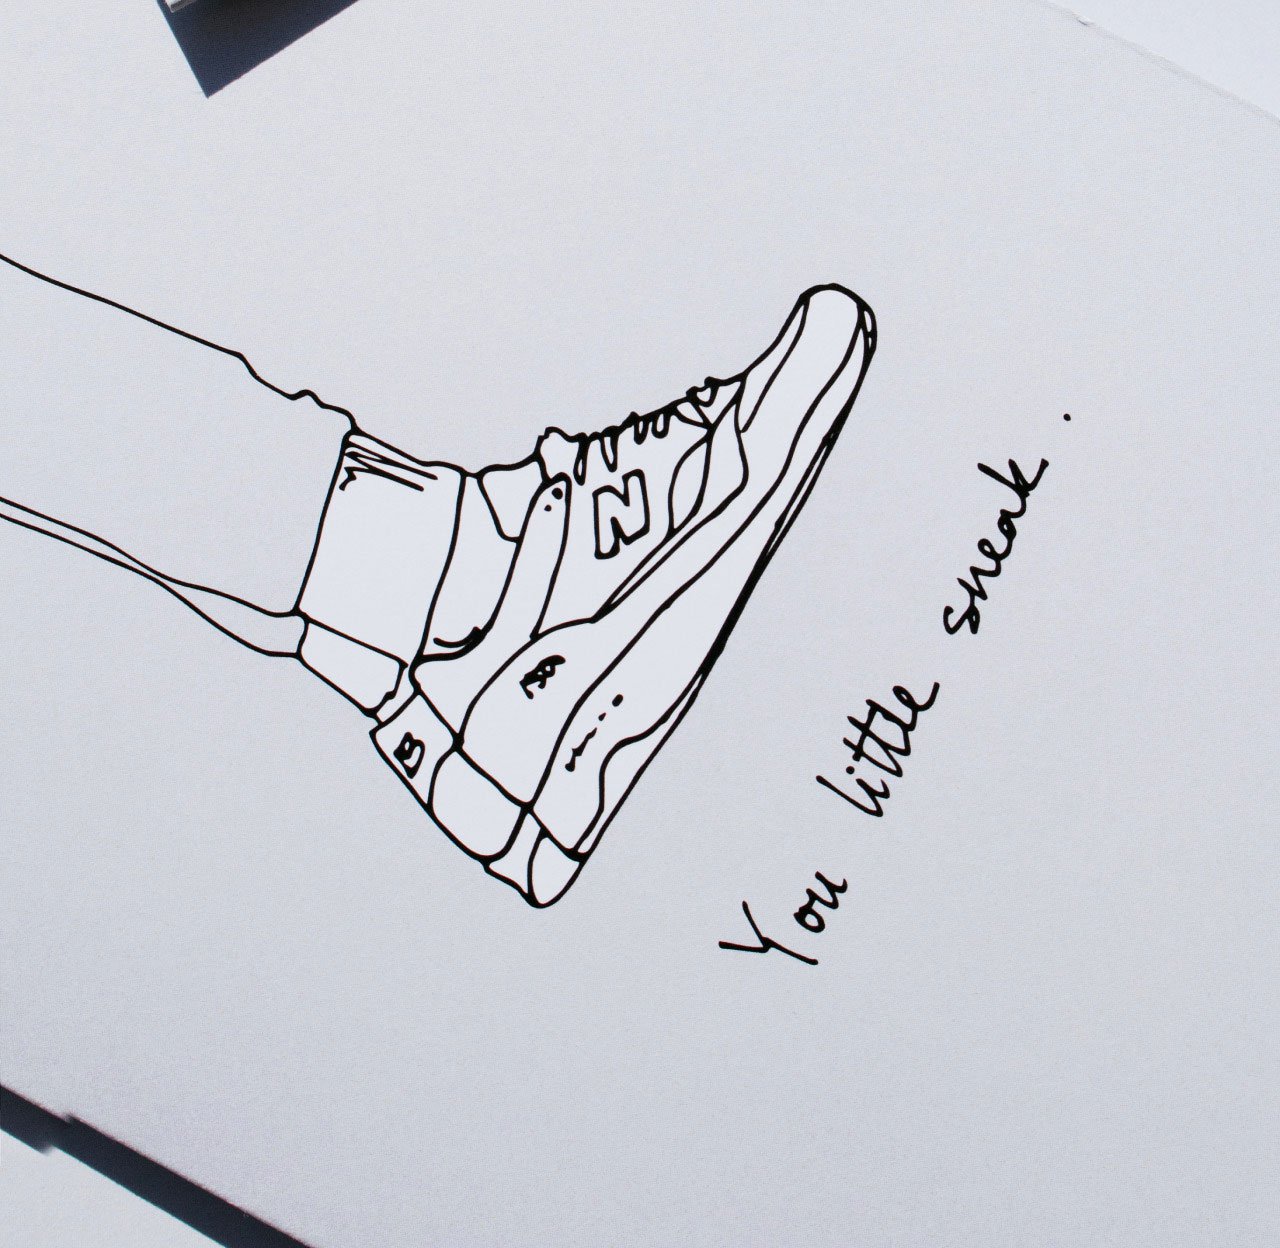 N
B
You little sneak.